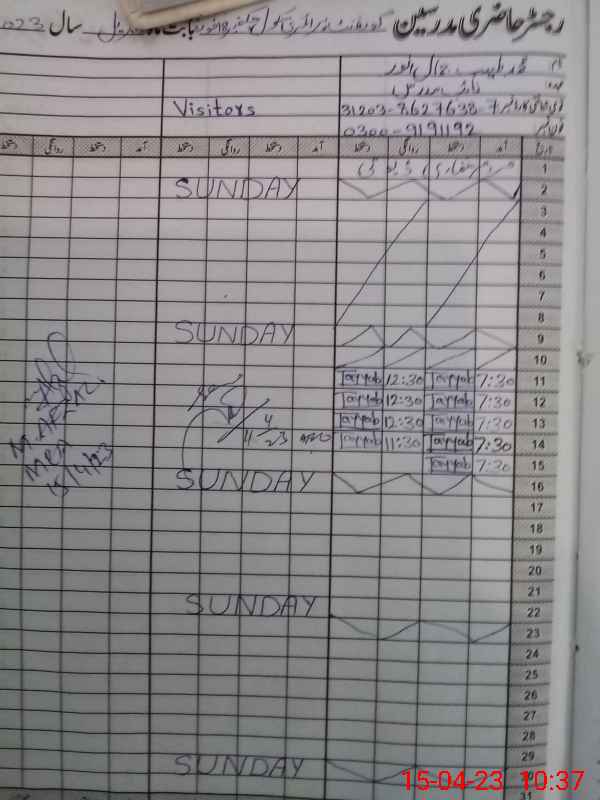 رجسٹر حاضری مدرسین گورنمنٹ سکول بابت ماہ اپریل سال 023
نام محمد طیب جمال انور
عہدہ
Visitors قومی شناختی کارڈ نمبر 31203-8627638-7
فون نمبر 0300-9191192
تاریخ آمد دستخط روانگی دستخط آمد دستخط روانگی دستخط آمد دستخط روانگی دستخط
1
SUNDAY 2
3
4
5
6
7
8
SUNDAY 9
10
Tayyab 12:30 Tayyab 7:30 11
Tayyab 12:30 Tayyab 7:30 12
Tayyab 12:30 Tayyab 7:30 13
Tayyab 11:30 Tayyab 7:30 14
Tayyab 7:30 15
11/4/23
MEA
15/4/23
SUNDAY 16
17
18
19
20
21
SUNDAY 22
23
24
25
26
27
28
SUNDAY 29
15-04-23 10:37